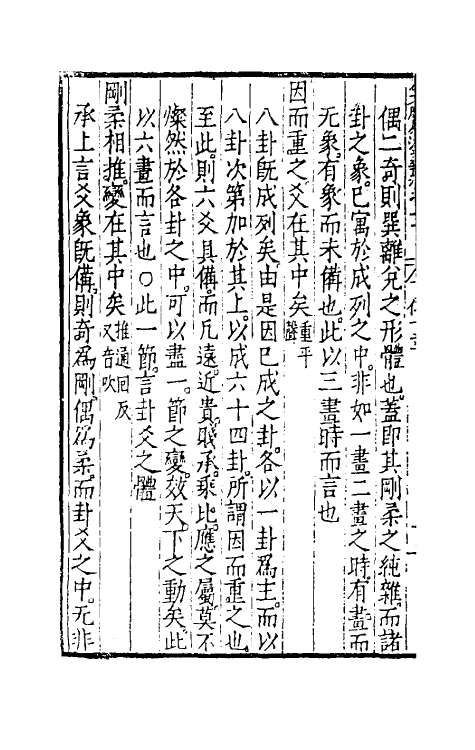 偶二奇則巽離兌之形體也。蓋即其剛柔之純雜。而諸
卦之象。已寓於成列之中。非如一畫二畫之時。有畫而
无象。有象而未備也。此以三畫時而言也
因而重之爻在其中矣 重平聲
八卦旣成列矣。由是因已成之卦。各以一卦爲主。而以
八卦次第加於其上。以成六十四卦。所謂因而重之也。
至此。則六爻具備。而凡遠。近貴。賤承。乘比。應之屬。莫不
燦然於各卦之中。可以盡一。節之變。效天。下之動矣。此
以六畫而言也○此一節。言卦爻之體
剛柔相推。變在其中矣 推通回反又音吹
承上言爻象旣備。則奇爲剛。偶爲柔。而卦爻之中。无非